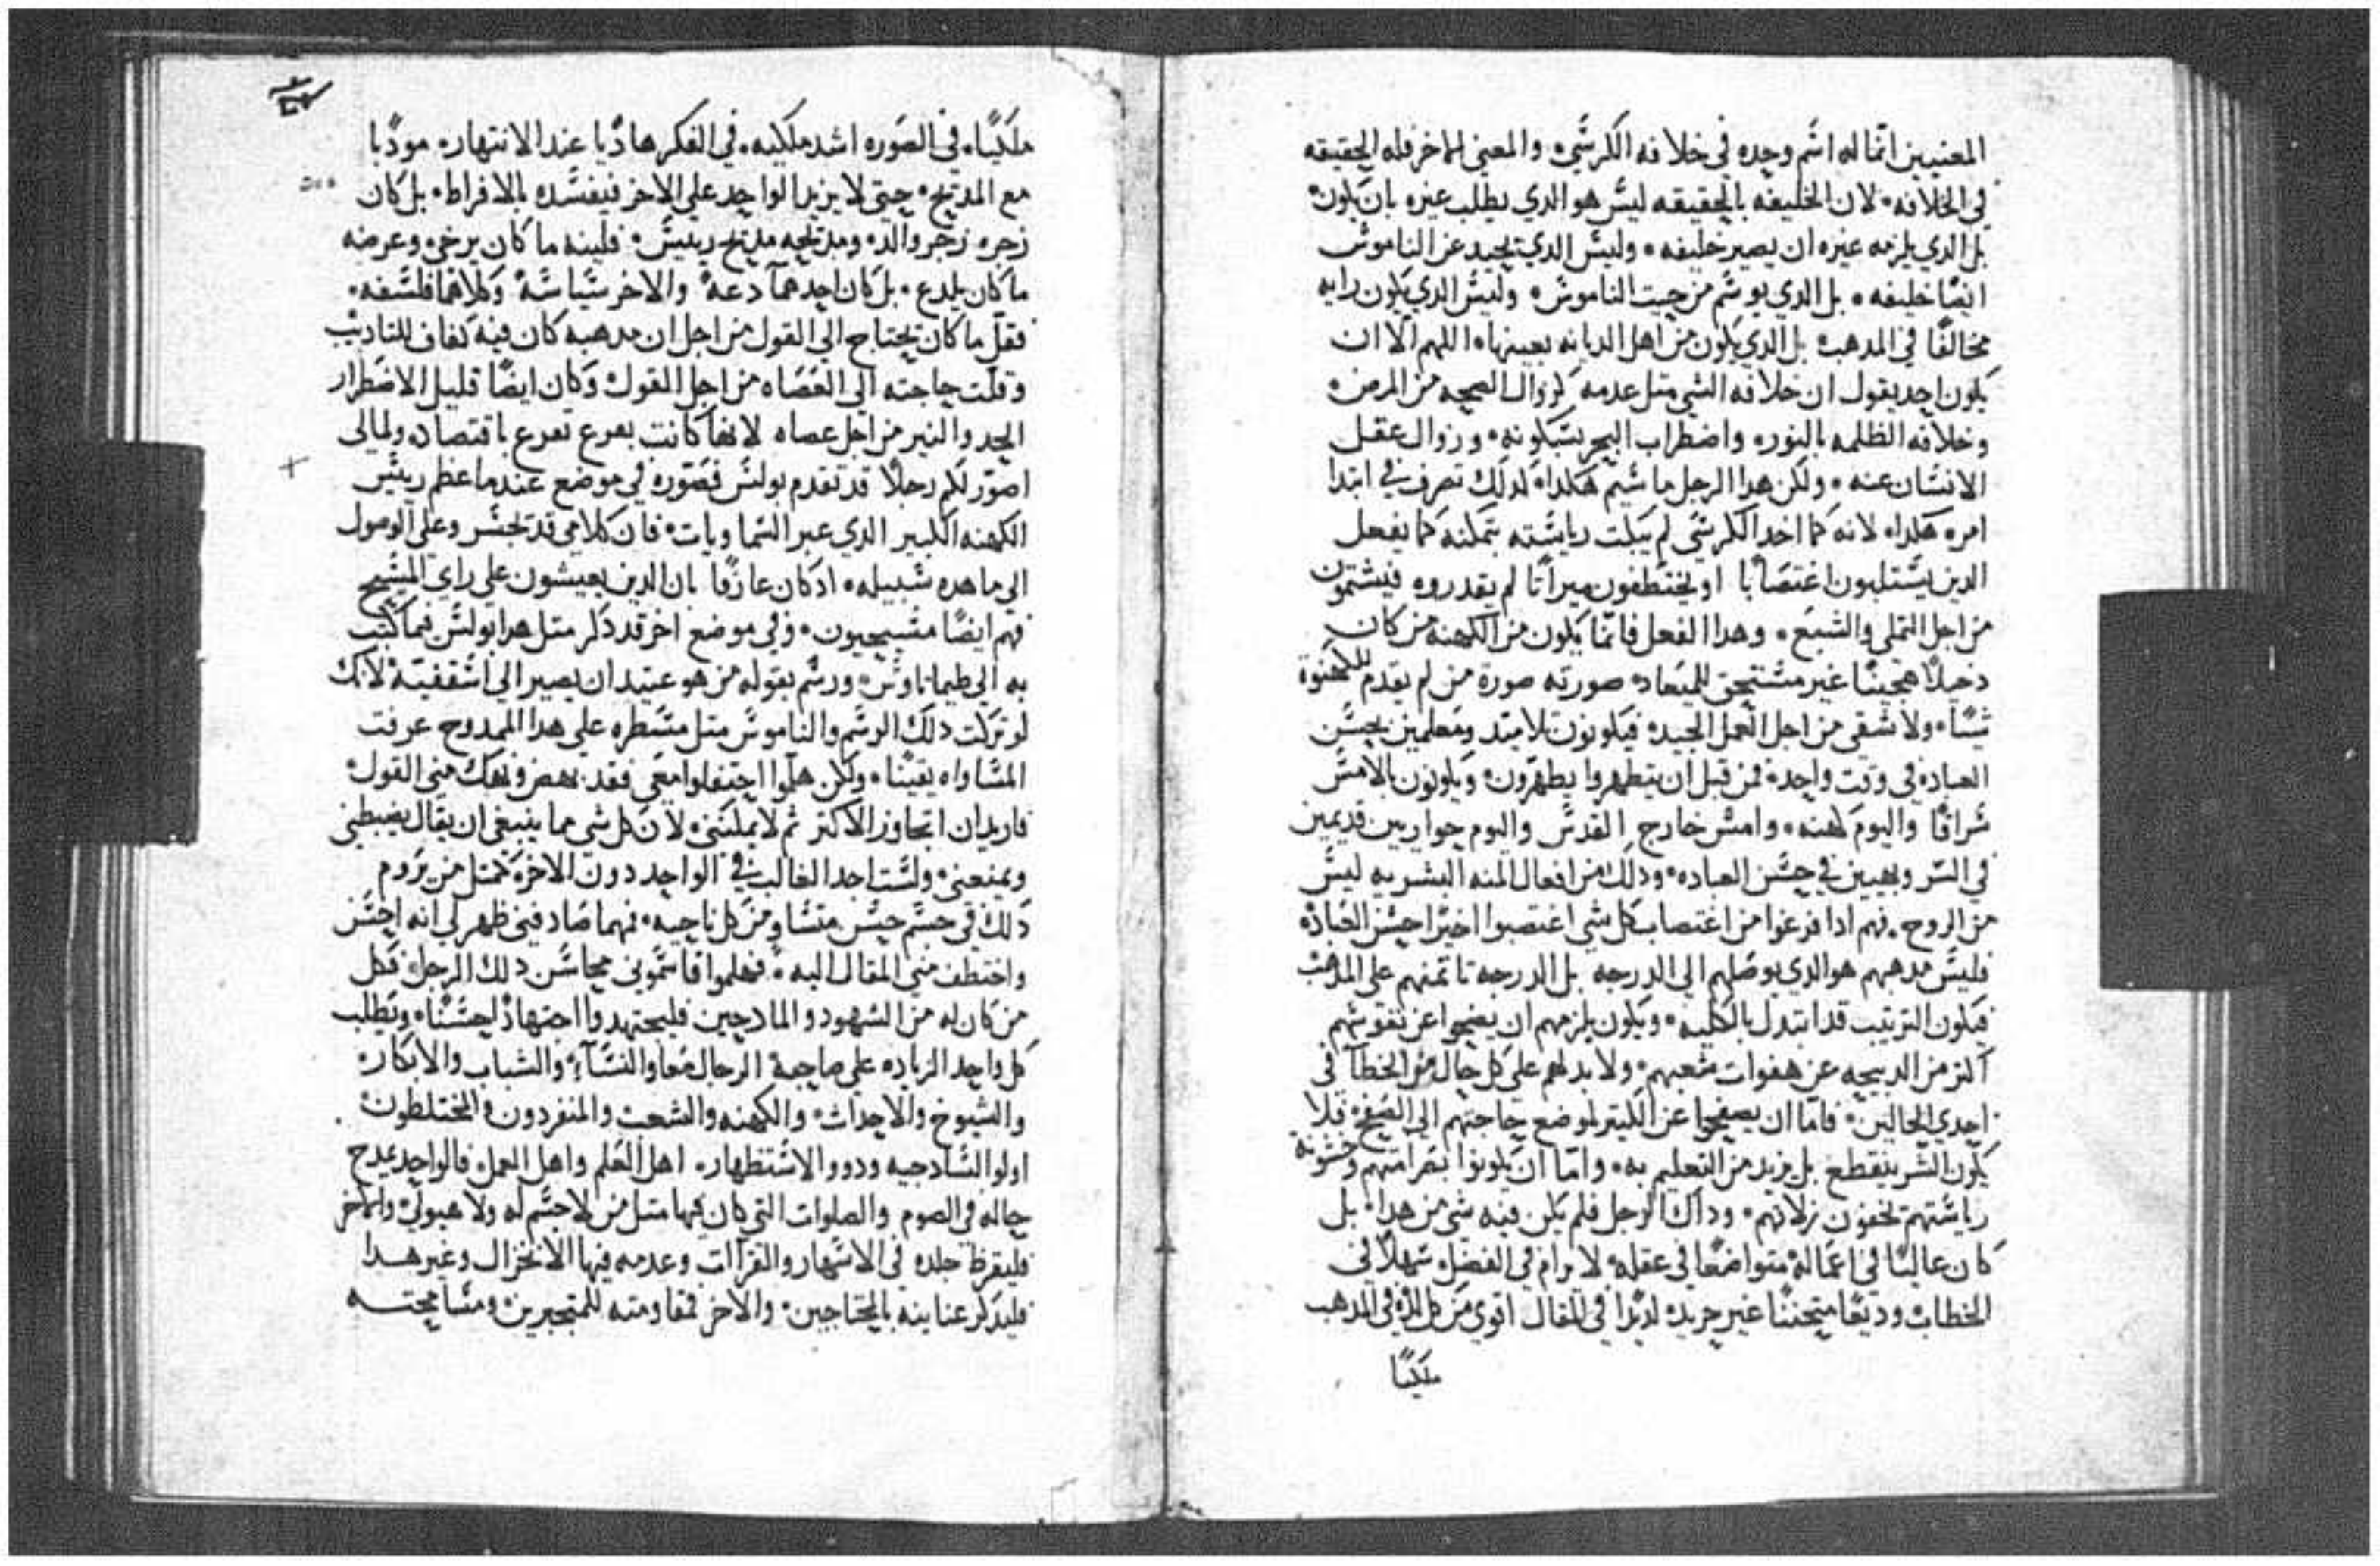 المعنيين انما له اسم وحده في خلافه الكرسي، والمعني الاخر فله الحقيقه
في الخلافه، لان الخليفه بالحقيقه ليس هو الدي يطلب غيره بان يكون
بل الدي يلزمه غيره ان يصير خليفه، وليس الدي يحيد عن الناموس
ايضا خليفه، بل الدي يوسم من حيت الناموس، وليس الدي يكون رايه
مخالفًا في المدهب، بل الدي يكون من اهل الديانه بعينها، اللهم الا ان
يكون احد يقول ان خلافه الشي متل عدمه كزوال الصحه من المرض،
وخلافه الظلمه بالنور، واضطراب البحر بسكونه، وزوال عقل
الانسان عنه، ولكن هدا الرجل ما سيم هكدا، لدلك تصرف في ابتدا
امره هكدا، لانه كما اخد الكرسي لم يبكت رياسته بتمكنه كما يفعل
الدين يستلبون اغتصابا او يختطفون ميراتا لم يقدروه فيشتمون
من اجل التملي والشبع، وهدا الفعل فانما يكون من الكهنه من كان
دخيلا هجينا غير مستحق للميعاد، صورته صورة من لم يقدم للكهنوة
شيا، ولا شقي من اجل العمل الجيد، فيكونون تلاميد ومعلمين بحسن
العباده في وقت واحد، فمن قبل ان يتطهروا يطهرون، ويكونون بالامس
سراقا واليوم كهنه، وامس خارج القدس واليوم حواريين قديمين
في الشر وبهيين في حسن العباده، ودلك من افعال المنه البشريه ليس
من الروح، فهم ادا فرغوا من اغتصاب كل شي اغتصبوا اخيرًا حسن العباده
فليس مدهبهم هو الدي يوصلهم الي الدرجه بل الدرجه تاتمنهم علي المدهب
فيكون الترتيب قد ابتدل بالكليه، ويكون يلزمهم ان يضحوا عن نفوسهم
اكتر من الدبيحه عن هفوات شعبهم، ولا بد لهم علي كل حال من الخطا في
احدي الحالين، فاما ان يصفحوا عن الكتير لموضع حاجتهم الي الصفح، فلا
يكون الشر ينقطع بل يزيد من التعليم به، واما ان يكونوا بصرامتهم وخشونة
رياستهم يخفون زلاتهم، وداك الرجل فلم يكن فيه شي من هدا، بل
كان عاليًا في اعماله متواضعًا في عقله، لا يرام في الفضل، سهلا في
الخطاب، وديعًا متحننا غير حريد، لديدا في المقال اقوي من كل لدة في المدهب
ملكيًا
ملكيًا، في الصوره اشد ملكيه، في الفكر هاديا عند الانتهار، مودبا
مع المديح، حتي لا يزيد الواحد علي الاخر فيفسده بالافراط، بل كان
زجره زجر والد، ومديحه مديح رييس، فلينه ما كان يرخي، وعرضه
ما كان يلدع، بل كان احدهما دعة، والاخر سياسة، وكلاهما فلسفه،
فقل ما كان يحتاج الي القول من اجل ان مدهبه كان فيه كفاف للتاديب
وقلت حاجته الي العصاه من اجل القول، وكان ايضًا قليل الاضطرار
الحد والنير من اجل عصاه لانها كانت بفرع تفرع باقتصاد، ولمالي
اصور لكم رجلا قد تقدم بولس فصوره في موضع عندما عظم رييس
الكهنه الكبير الدي عبر السماويات، فان كلامي قد تجسر وعلي الوصول
الي ما هده سبيله، اد كان عارفا بان الدين يعيشون علي راي المسيح
فهم ايضًا مسيحيون، وفي موضع اخر قد دكر متل هدا بولس فيما كتب
به الي طيماتاوس، ورسم بقوله من هو عتيد ان يصير الي اسقفية، لانك
لو تركت دلك الرسم والناموس متل مسطره علي هدا الممدوح عرفت
المساواه يقينا، ولكن هلموا احتفلوا معي فقد بهض وبهك مني القول
فاريد ان اتجاوز الاكتر ثم لا يمكنني، لان كل شي مما ينبغي ان يقال يضبطني
ويمنعني، ولست اجد الغالب في الواحد دون الاخر، كمتل من يروم
دلك في جسم حسن متساو من كل ناحيه، فمهما صادفني ظهر لي انه احسن
واختطف مني المقال اليه، فهلموا قاسموني محاسن دلك الرجل، فكل
من كان له من الشهود والمادحين فليجتهدوا اجتهادًا حسنًا، ويطلب
كل واحد الزياده علي صاحبه، الرجال معا والنسآء، والشباب والابكار
والشيوخ والاحدات، والكهنه والشعب، والمنفردون والمختلطون
اولوا السادجيه ودوو الاستظهار، اهل العلم واهل العمل، فالواحد يمدح
حاله في الصوم والصلوات التي كان فيها متل من لا جسم له ولا هيولي، والاخر
فليقرظ جلده في الاسهار والقراات وعدمه فيها الانخزال وغير هدا
فليدكر عنايته بالمحتاجين، والاخر فمقاومته للمتجبرين، ومسامحته